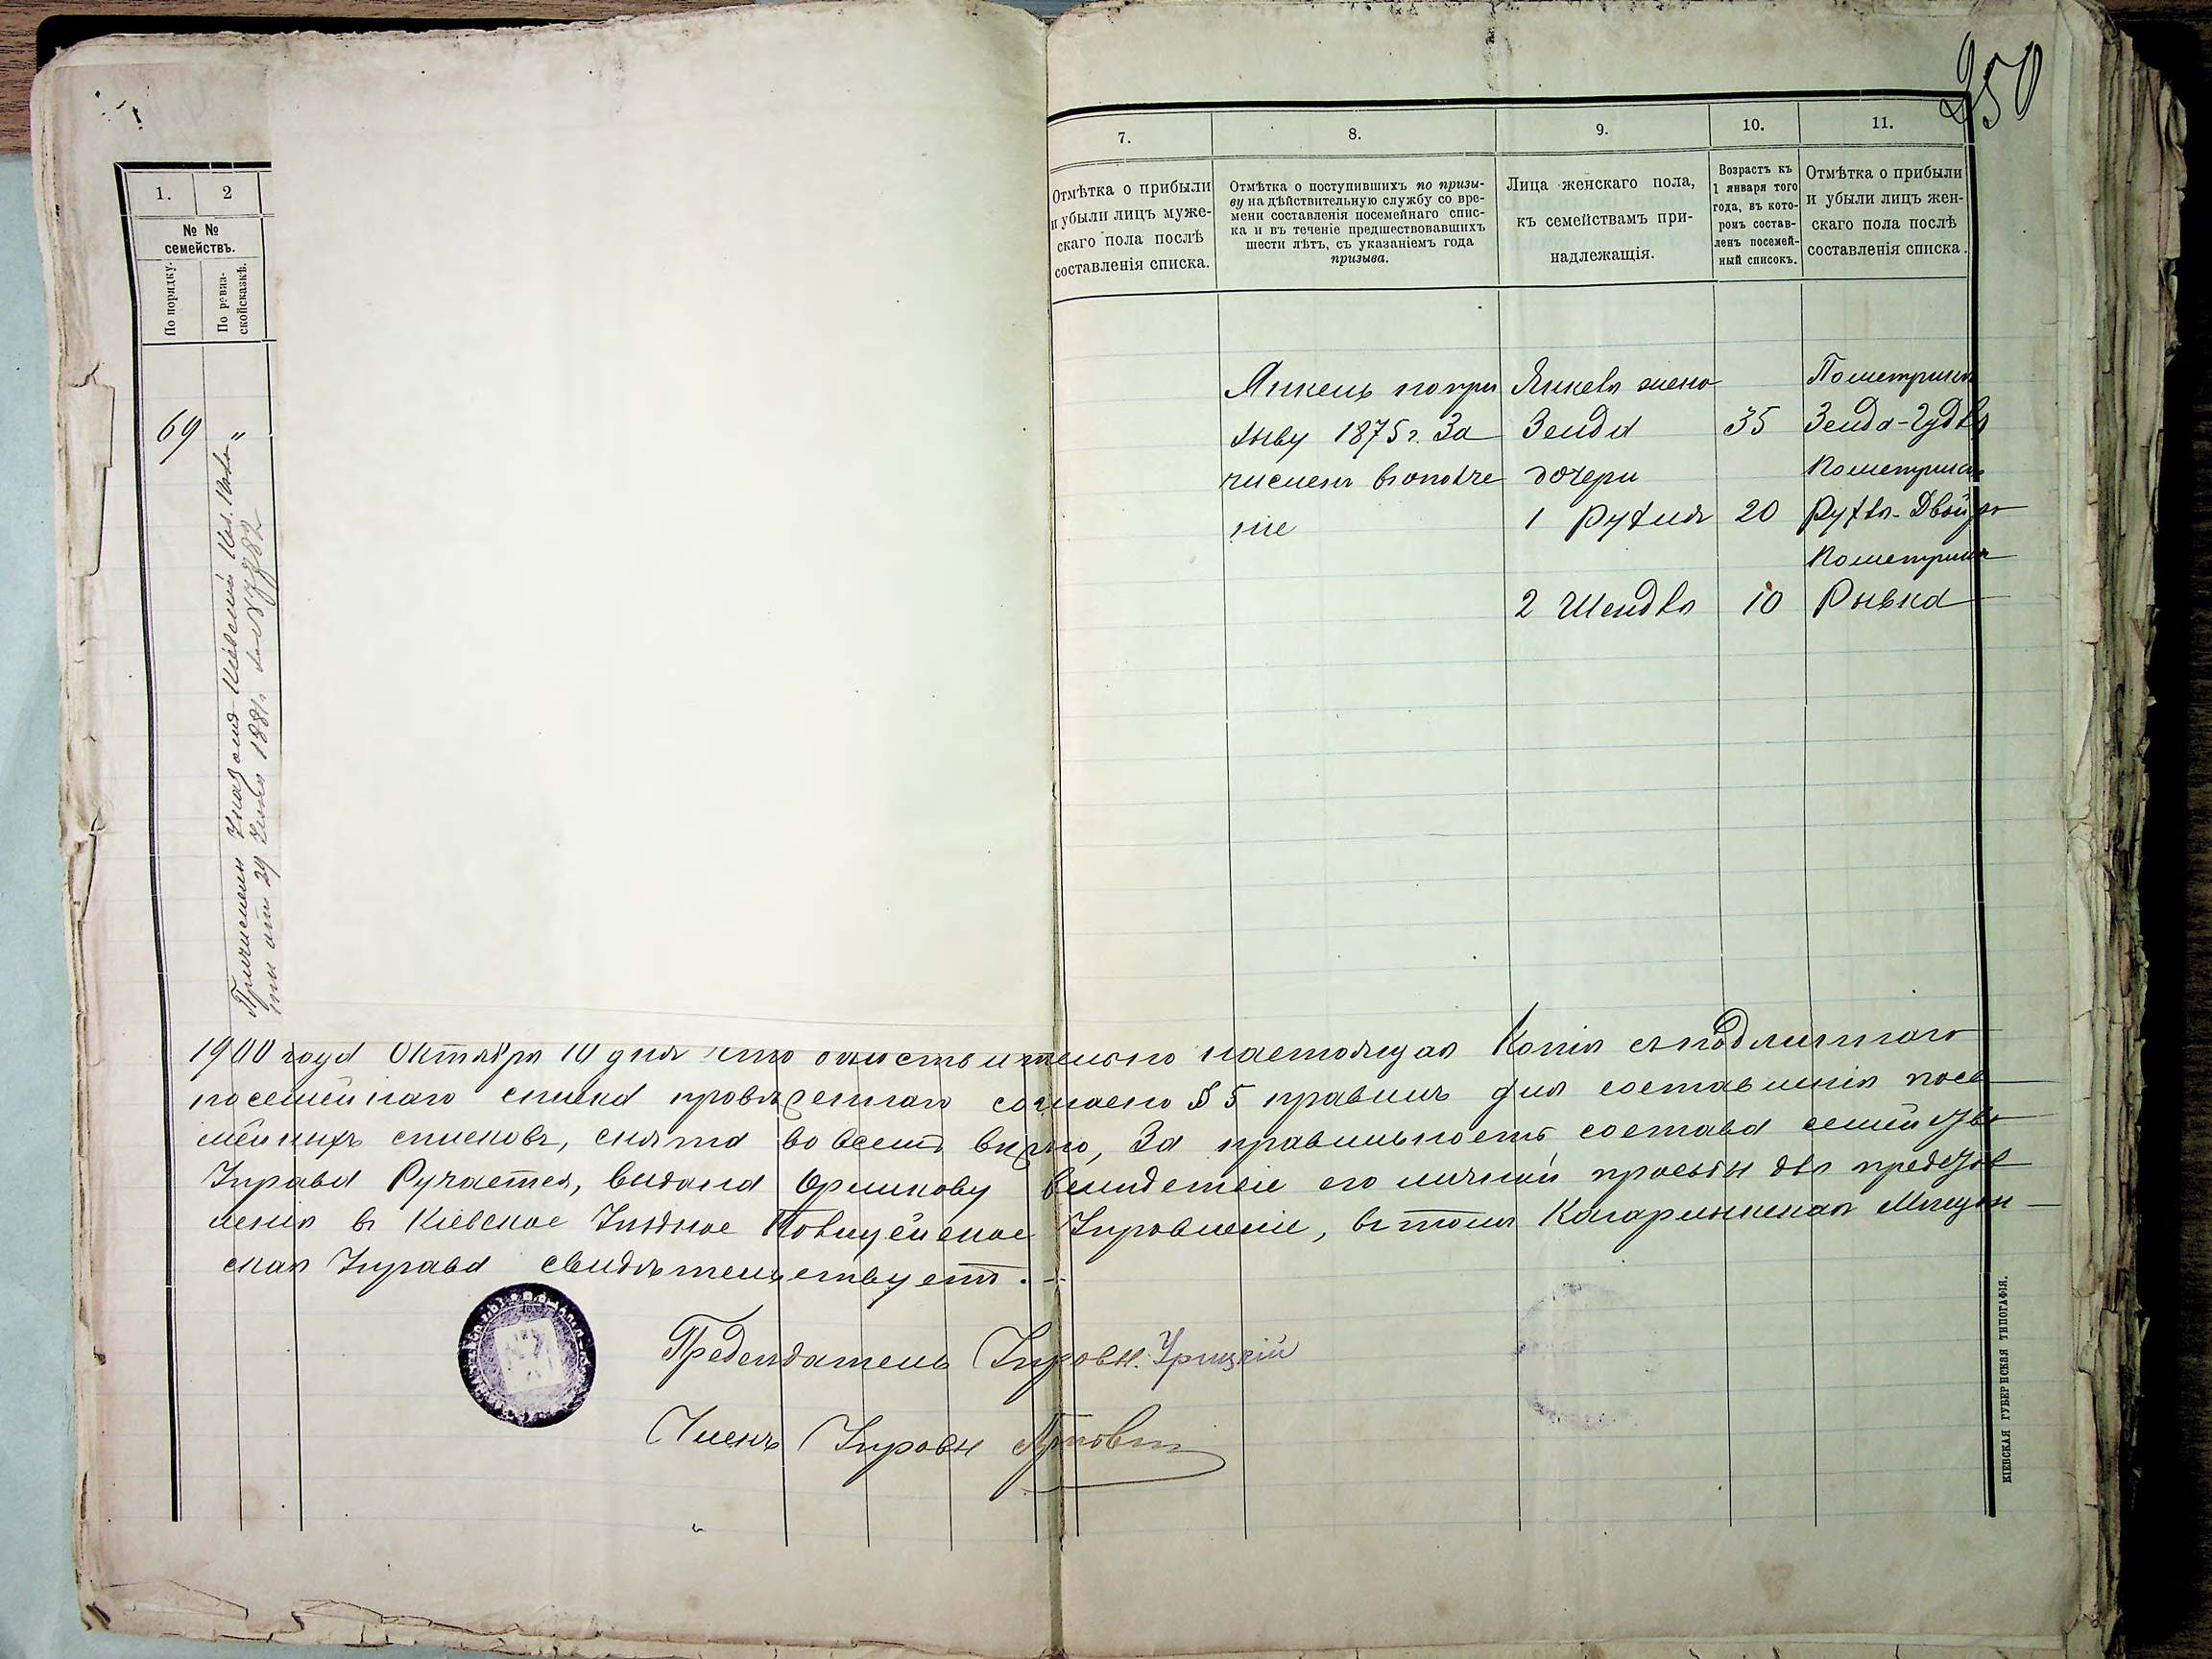 250
1.
2
№ №
семействъ.
По порядку.
По ревиз-
скойсказкѣ.
69
"
Причисленъ Указомъ Кіевской Каз. Пала
ты отъ 29 1881г. за № 7882
7.
8.
9.
10.
11.
Отмѣтка о прибыли
и убыли лицъ муже-
скаго пола послѣ
составленія списка.
Отмѣтка о поступившихъ по призы-
ву на дѣйствительную службу со вре-
мени составленія посемейнаго спис-
ка и въ теченіе предшествовавшихъ
шести лѣтъ, съ указаніемъ года
призыва.
Лица женскаго пола,
къ семействамъ при-
надлежащія.
Возрастъ къ
1 января того
года, въ кото-
ромъ состав-
ленъ посемей-
ный списокъ.
Отмѣтка о прибыли
и убыли лицъ жен-
скаго пола послѣ
составленія списка.
Янкель попри Янкеля жена Пометрики
зыву 1875 г. За Зенда 35 Зенда-Гудля
численъ вополче дочери Пометрики
ніе 1 Рухля 20 Рухля-Двойра
Пометрики
2 Шендля 10 Рывка
1900 года Октября 10 дня что дѣйствительно настоящая Копія съподлиннаго
посемейнаго списка провѣреннаго согласно § 5 правилъ для составленія посе
мейныхъ списковъ, снята во всемъ вѣрно, За правильность состава семейства
Управа Ручается, выдана его личной просьбы для представ
ленія въ Кіевское Уѣздное Полицейское Управленіе, въ томъ Кагарлыкская Мѣщан
ская Управа свидѣтельствуетъ.
Предсѣдатель Управы. Урицкій
Членъ Управы
КІЕВСКАЯ ГУБЕРНСКАЯ ТИПОГРАФІЯ.